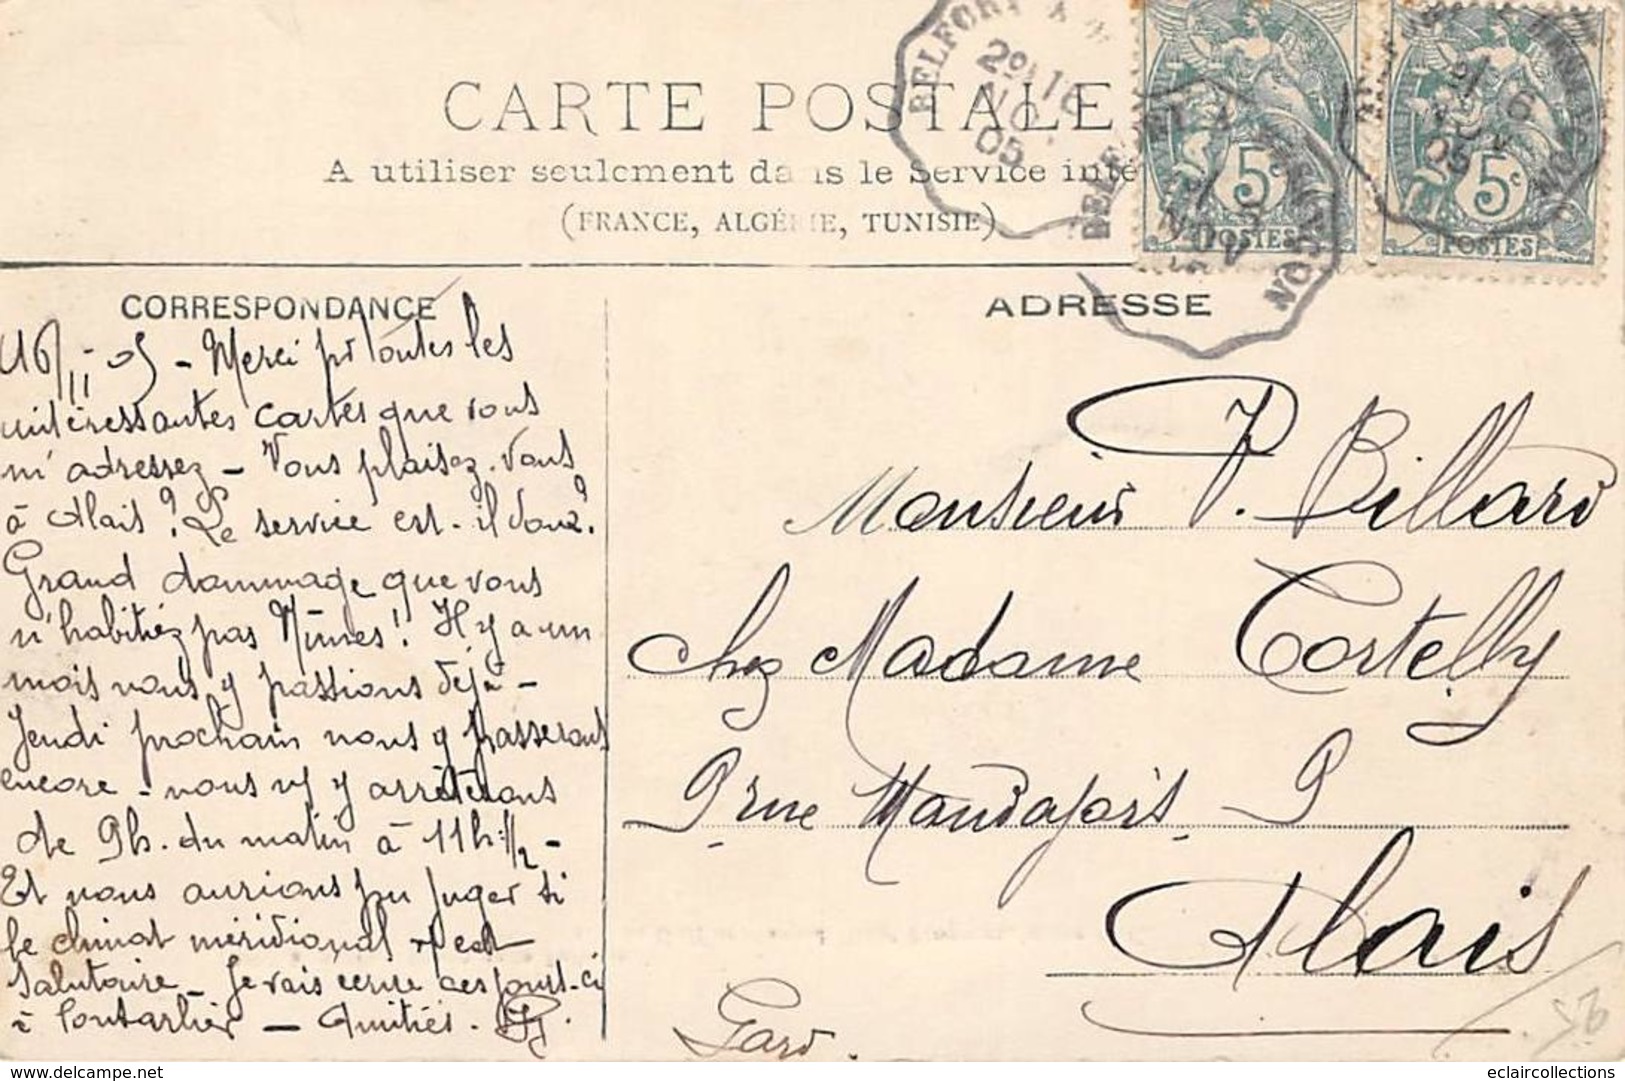 CARTE POSTALE
A utiliser seulement dans le Service inté
(FRANCE, ALGÉRIE, TUNISIE)
BELFORT A
16
NO
05
5c
POSTES
5c
POSTES
CORRESPONDANCE
ADRESSE
16/11-05 - Merci pr toutes les
intéressantes cartes que vous
m'adressez - Vous plaisez-vous
à Alais? Le service est-il doux?
Grand dommage que vous
n'habitiez pas Nîmes! Il y a un
mois nous y passions déjà -
Jeudi prochain nous y passerons
encore - nous ns y arrêterons
de 9h. du matin à 11h 1/2 -
Et nous aurions pu juger si
le climat méridional vs est
salutaire - Je vais ces jours-ci
à Pontarlier - Amitiés.
Monsieur P. Billard
chez Madame Cortelly
9 rue Mandajors 9
Alais
Gard.
56
eclaircollections
www.delcampe.net